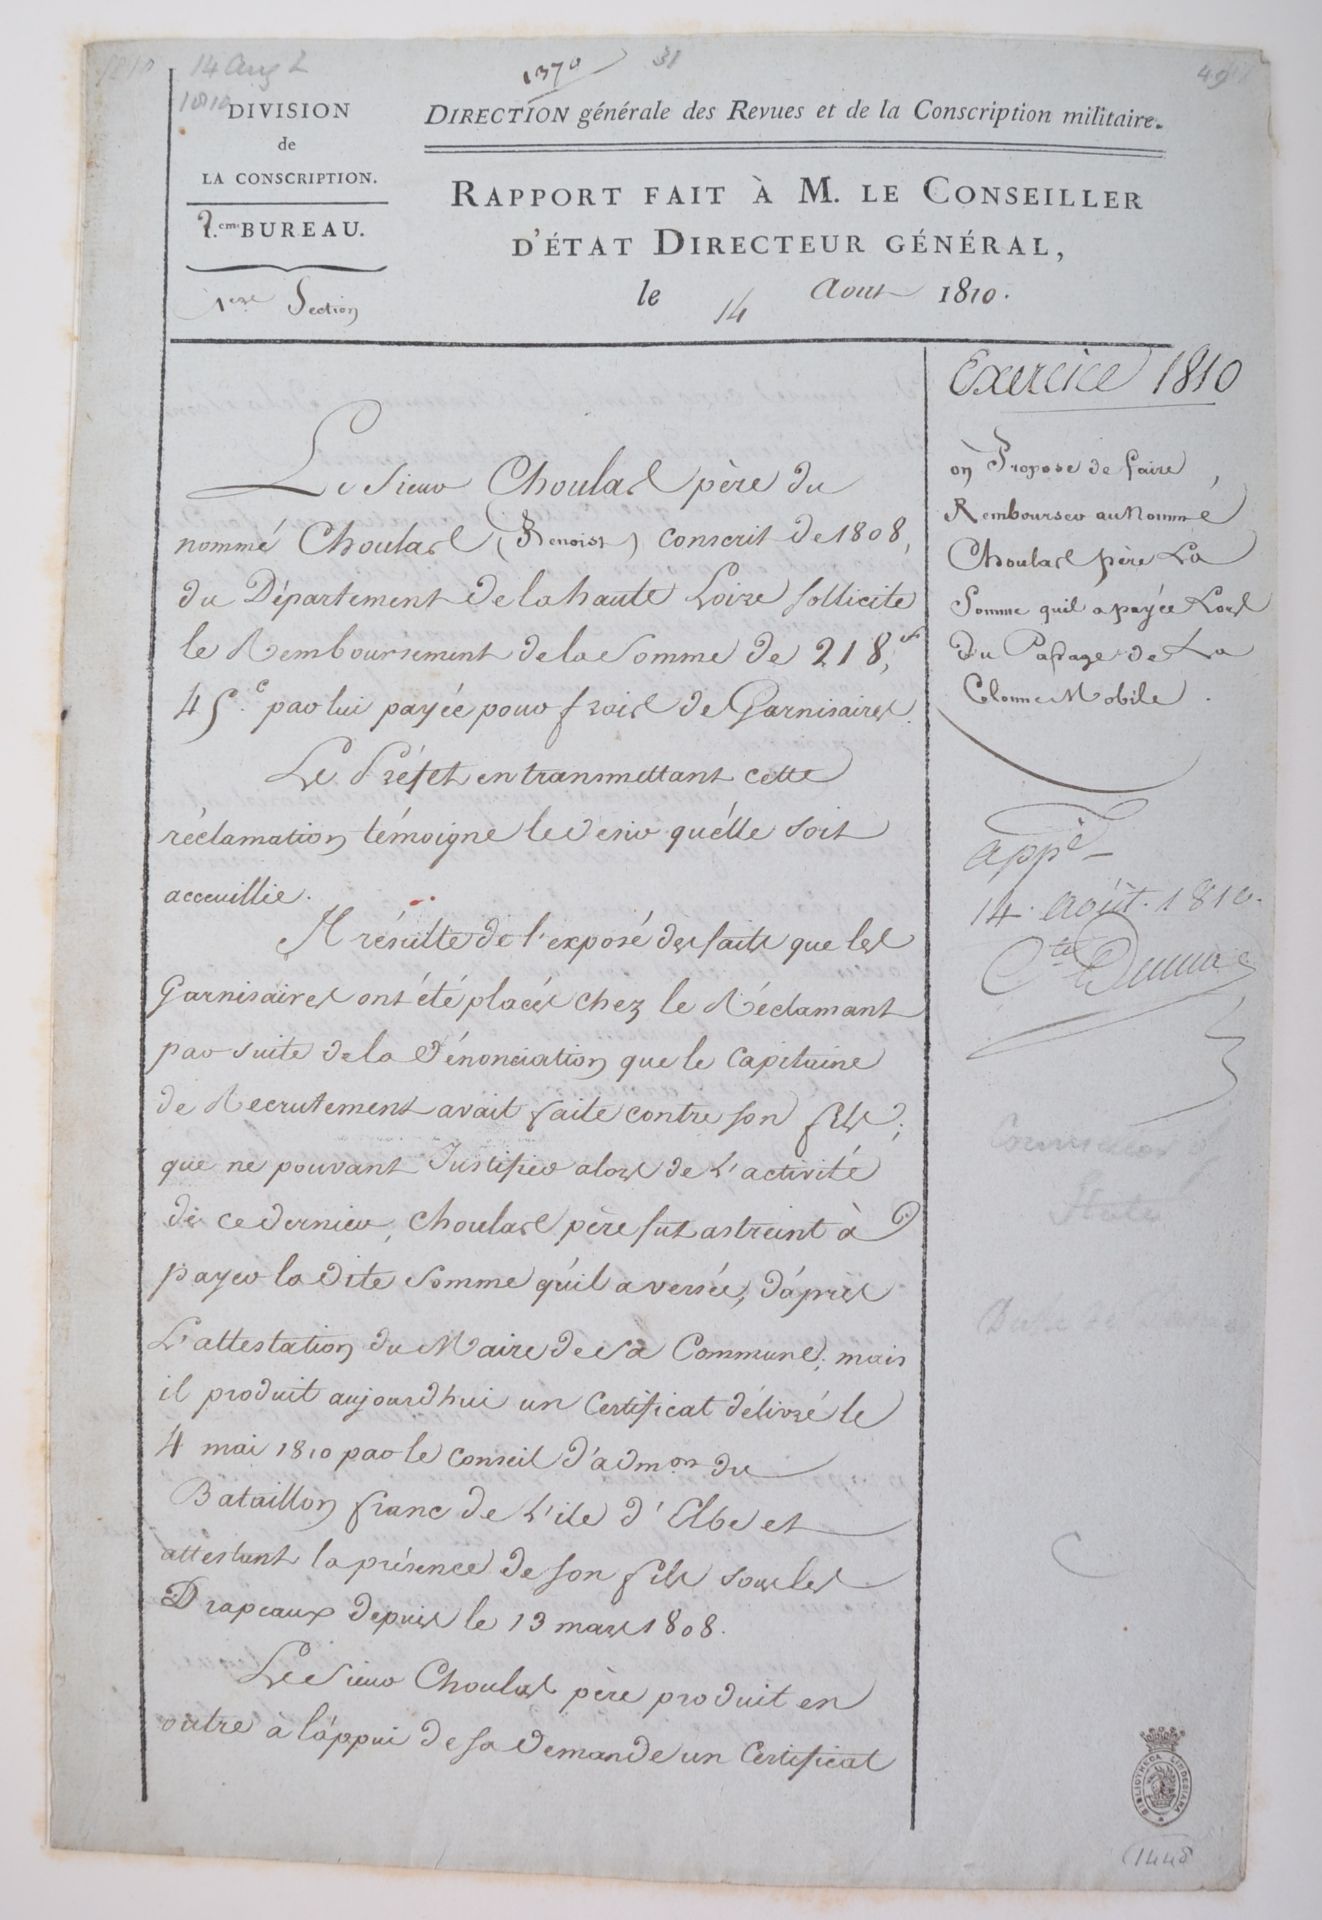 14 Aug
1810
1370
31
DIVISION
de
LA CONSCRIPTION.
2.eme BUREAU.
1ere Section
DIRECTION générale des Revues et de la Conscription militaire.
RAPPORT FAIT À M. LE CONSEILLER
D'ÉTAT DIRECTEUR GÉNÉRAL,
le 14 Aout 1810.
Le Sieur Choulas père du
nommé Choulas (Benoist) conscrit de 1808,
du Département de la haute Loire sollicite
le Remboursement de la Somme de 218,f
45c. par lui payée pour frais de Garnisaires.
Le Préfet en transmettant cette
réclamation témoigne le desir qu'elle soit
acceuillie.
Il résulte de l'exposé des faits que les
Garnisaires ont été placés chez le Réclamant
par suite de la Dénonciation que le Capitaine
de Recrutement avait faite contre son fils;
que ne pouvant Justifier alors de l'activité
de ce dernier, Choulas père fut astreint à
payer la dite Somme qu'il a versée, d'après
l'attestation du Maire de sa Commune; mais
il produit aujourdhui un Certificat délivré le
4 mai 1810 par le Conseil d'admon du
Bataillon franc de l'ile d'Elbe et
attestant la présence de son fils sous les
Drapeaux depuis le 13 mars 1808.
Le Sieur Choulas père produit en
outre à l'appui de sa Demande un Certificat
Exercice 1810
on Propose de faire
Rembourser au Nommé
Choulas père La
Somme quil a payée Lors
du Passage de La
Colonne Mobile.
appé
14. Août. 1810.
Cte Dumas
Counsellor of
State
BIBLIOTHECA LINDESIANA
1448